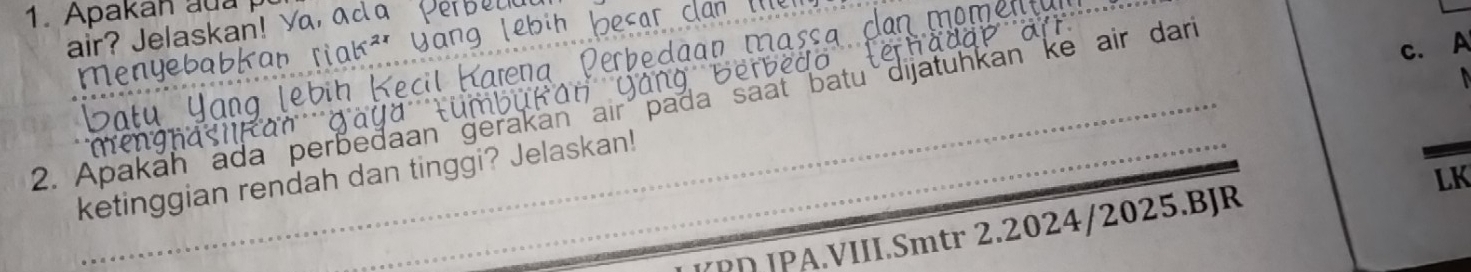 1. Apakah ada
air? Jelaskan! Ya, ada
menyebabkan riak²ʳ yang lebih besar dan
batu yang lebih kecil karena perbedaan massa dan momentum
menghasilkan gaya tumbukan yang berbeda terhadap air.
2. Apakah ada perbedaan gerakan air pada saat batu dijatuhkan ke air dari
ketinggian rendah dan tinggi? Jelaskan!
LKPD IPA.VIII.Smtr 2.2024/2025.BJR
c. A
LK